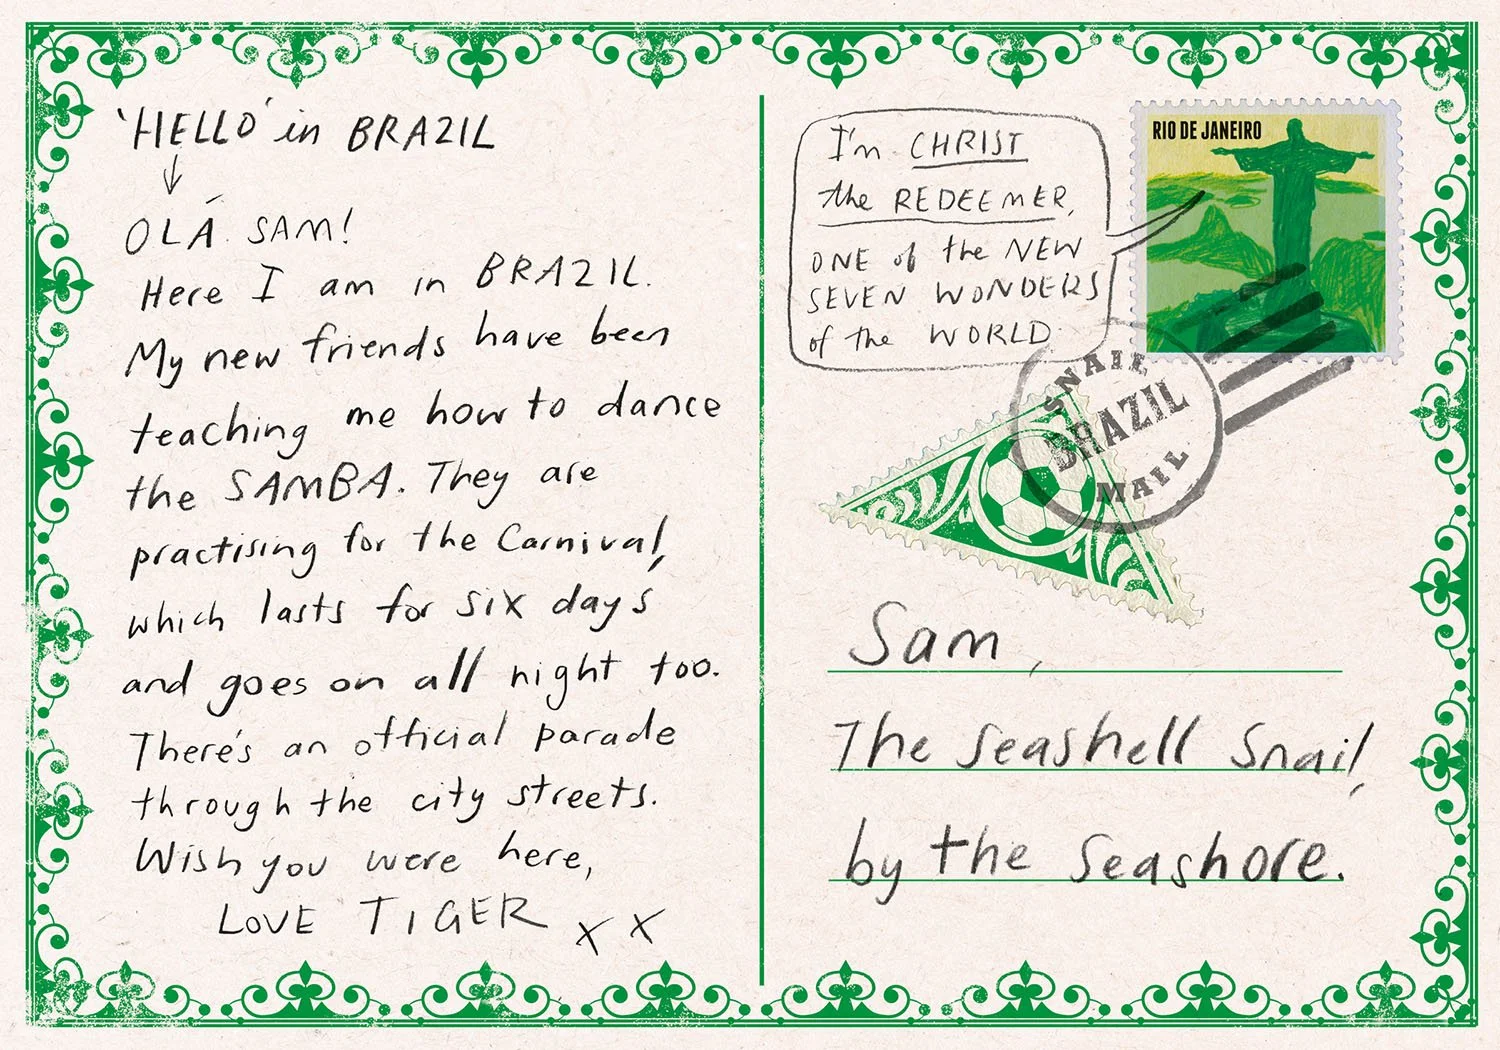 'HELLO' in BRAZIL
OLÁ SAM!
Here I am in BRAZIL.
My new friends have been
teaching me how to dance
the SAMBA. They are
practising for the Carnival,
which lasts for six days
and goes on all night too.
There's an official parade
through the city streets.
Wish you were here,
LOVE TIGER x x
I'm CHRIST
the REDEEMER,
ONE of the NEW
SEVEN WONDERS
of the WORLD
RIO DE JANEIRO
SNAIL
BRAZIL
MAIL
Sam,
The Seashell Snail,
by the Seashore.